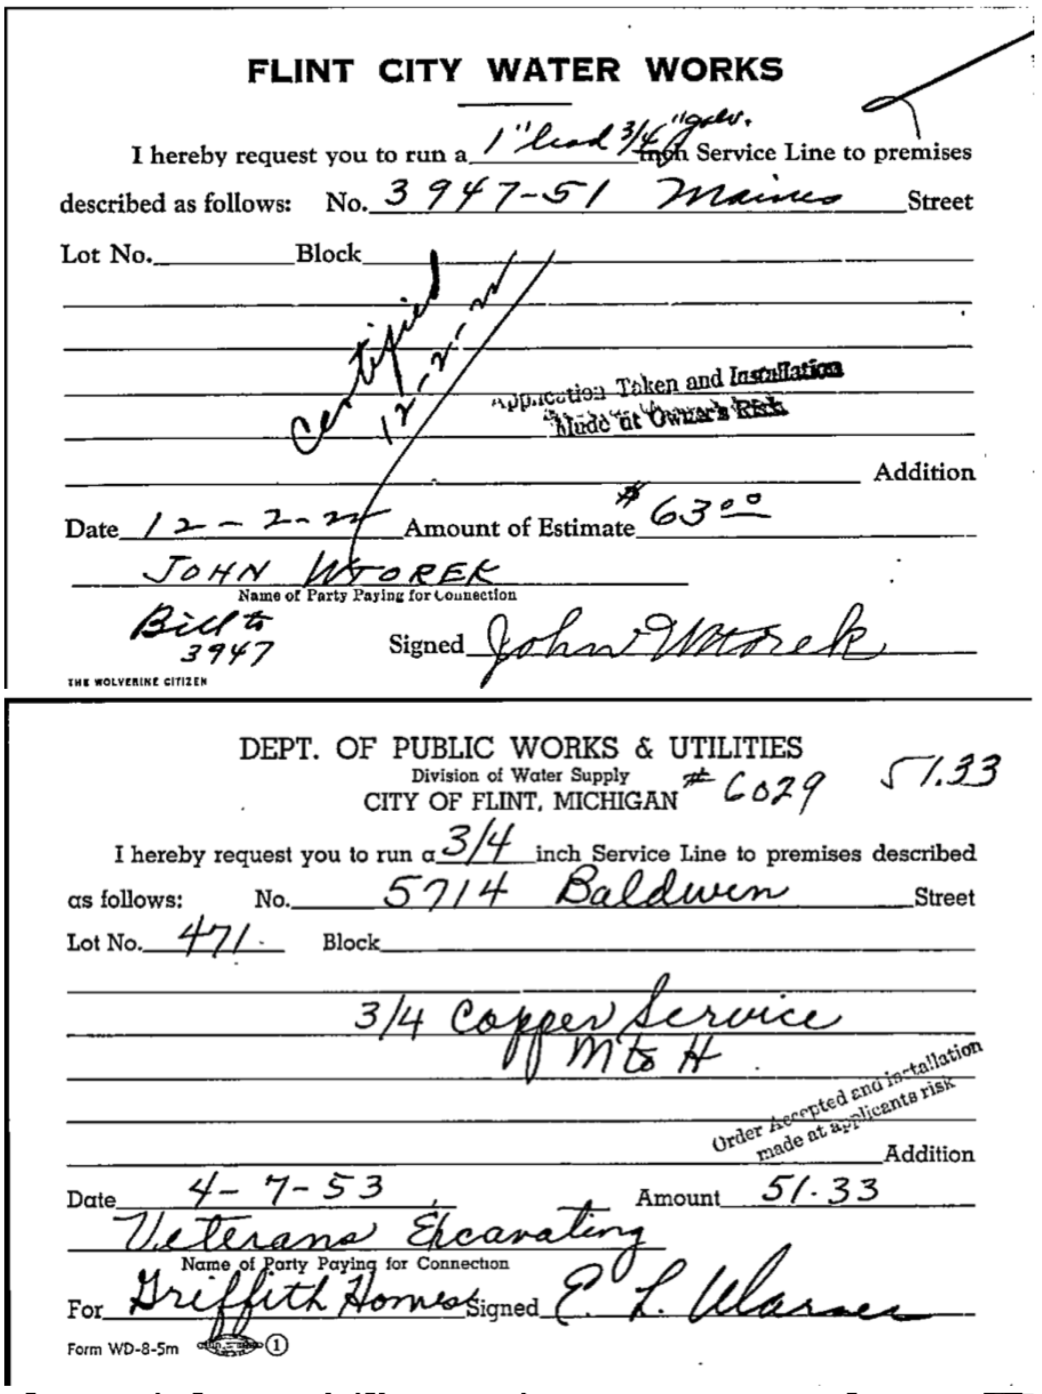 FLINT CITY WATER WORKS
1" lead 3/4" galv.
I hereby request you to run a inch Service Line to premises
described as follows: No. 3947-51 Maines Street
Lot No. Block
Certified
12-2-24
Application Taken and Installation
Made at Owner's Risk
Addition
Date 12-2-24 Amount of Estimate $63.00
JOHN WTOREK
Name of Party Paying for Connection
Bill to
3947
Signed John Wtorek
THE WOLVERINE CITIZEN
DEPT. OF PUBLIC WORKS & UTILITIES
Division of Water Supply
CITY OF FLINT, MICHIGAN # 6029 51.33
I hereby request you to run a 3/4 inch Service Line to premises described
as follows: No. 5714 Baldwin Street
Lot No. 471. Block
3/4 Copper Service
M to H
Order Accepted and Installation
made at applicants risk
Addition
Date 4-7-53 Amount 51.33
Veterans Excavating
Name of Party Paying for Connection
For Griffith Homes Signed E. L. Warner
Form WD-8-5m 1